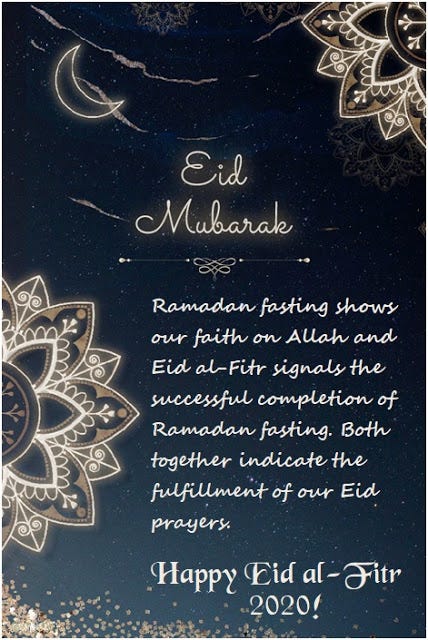 Eid
Mubarak
Ramadan fasting shows
our faith on Allah and
Eid al-Fitr signals the
successful completion of
Ramadan fasting. Both
together indicate the
fulfillment of our Eid
prayers.
Happy Eid al-Fitr
2020!